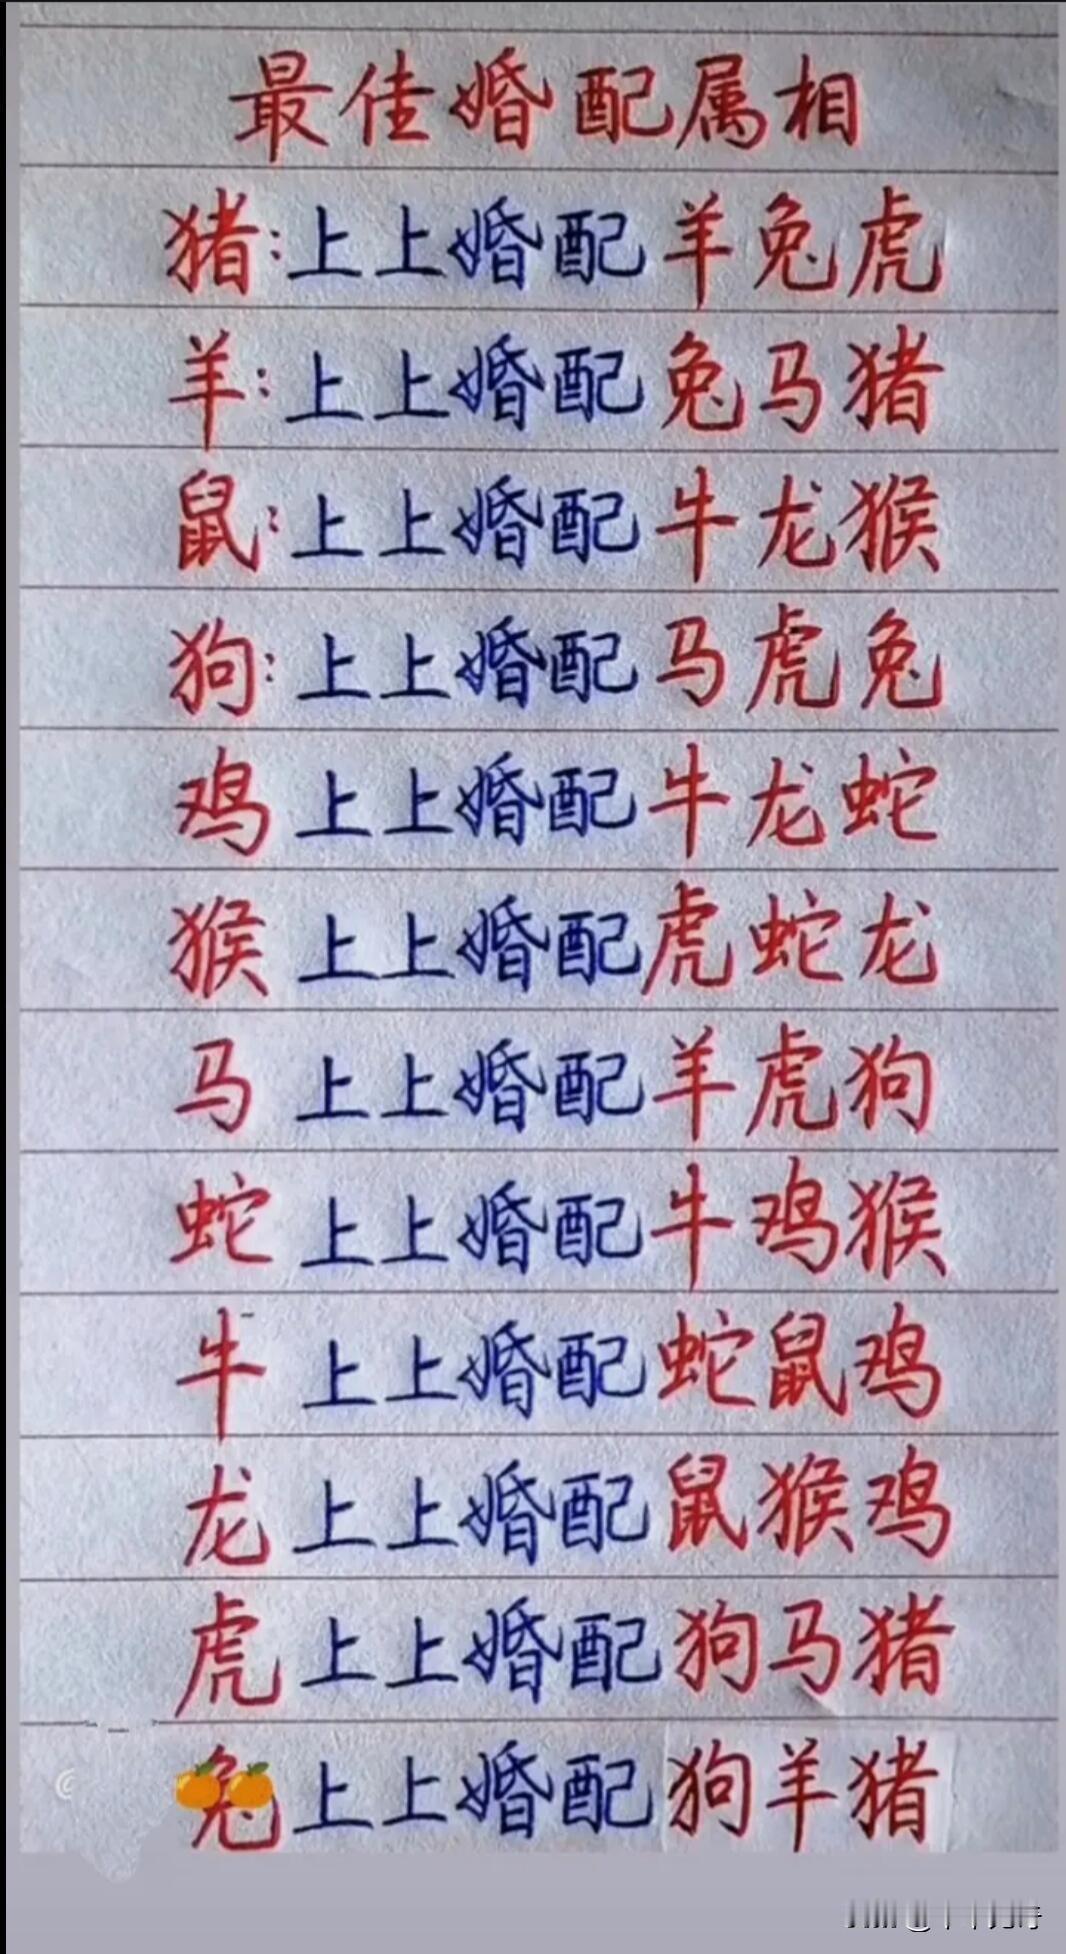 最佳婚配属相
猪:上上婚配羊兔虎
羊:上上婚配兔马猪
鼠:上上婚配牛龙猴
狗:上上婚配马虎兔
鸡 上上婚配牛龙蛇
猴 上上婚配虎蛇龙
马 上上婚配羊虎狗
蛇 上上婚配牛鸡猴
牛 上上婚配蛇鼠鸡
龙 上上婚配鼠猴鸡
虎 上上婚配狗马猪
兔上上婚配狗羊猪